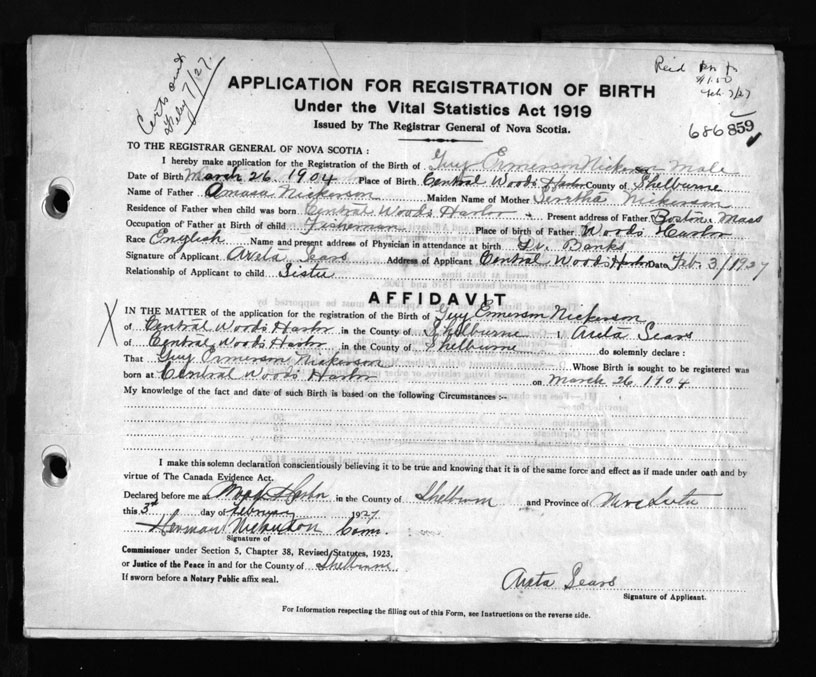 Certs out
Feby 7/27.
$1.50
Feb. 7/27
686859
APPLICATION FOR REGISTRATION OF BIRTH
Under the Vital Statistics Act 1919
Issued by The Registrar General of Nova Scotia.
TO THE REGISTRAR GENERAL OF NOVA SCOTIA :
I hereby make application for the Registration of the Birth of Guy Ormerson Nickerson Male
Date of Birth March 26 1904 Place of Birth Central Woods Harbor County of Shelburne
Name of Father Amasa Nickerson Maiden Name of Mother Nickerson
Residence of Father when child was born Central Woods Harbor Present address of Father Boston Mass
Occupation of Father at Birth of child Fisherman Place of Birth of Father Woods Harbor
Race English Name and present address of Physician in attendance at birth Dr. Banks
Signature of Applicant Areta Sears Address of Applicant Central Woods Harbor Date Feb. 3/1927
Relationship of Applicant to child Sister
AFFIDAVIT
X
IN THE MATTER of the application for the registration of the Birth of Guy Ormerson Nickerson
of Central Woods Harbor in the County of Shelburne I, Areta Sears
of Central Woods Harbor in the County of Shelburne do solemnly declare :
That Guy Ormerson Nickerson Whose Birth is sought to be registered was
born at Central Woods Harbor on March 26 1904
My knowledge of the fact and date of such Birth is based on the following Circumstances :-
I make this solemn declaration conscientiously believing it to be true and knowing that it is of the same force and effect as if made under oath and by
virtue of The Canada Evidence Act.
Declared before me at Woods Harbor in the County of Shelburn and Province of Nova Scotia
this 3rd day of February 1927
Herman Nickerson Com.
Signature of
Commissioner under Section 5, Chapter 38, Revised Statutes, 1923,
or Justice of the Peace in and for the County of Shelburne
If sworn before a Notary Public affix seal.
Areta Sears
Signature of Applicant.
For Information respecting the filling out of this Form, see Instructions on the reverse side.